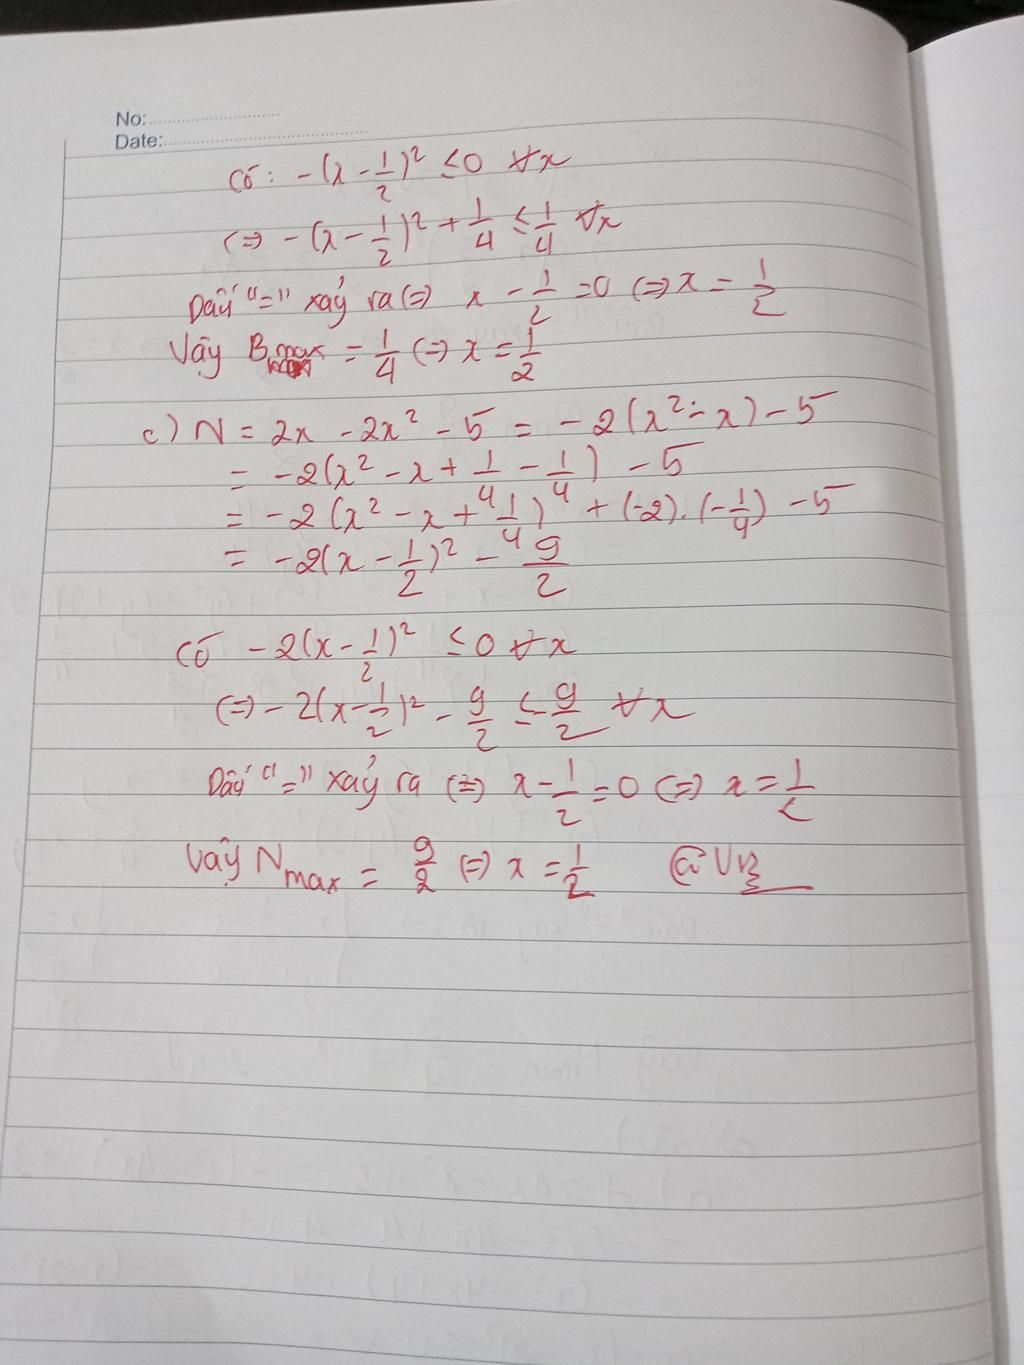 No:
Date:
Có: -(x - 1/2)² ≤ 0 ∀x
(=) -(x - 1/2)² + 1/4 ≤ 1/4 ∀x
Dấu "=" xảy ra (=) x - 1/2 = 0 (=) x = 1/2
Vậy Bmax = 1/4 (=) x = 1/2
c) N = 2x - 2x² - 5 = -2(x² - x) - 5
= -2(x² - x + 1/4 - 1/4) - 5
= -2(x² - x + 1/4) + (-2).(-1/4) - 5
= -2(x - 1/2)² - 9/2
Có -2(x - 1/2)² ≤ 0 ∀x
(=) -2(x - 1/2)² - 9/2 ≤ -9/2 ∀x
Dấu "=" xảy ra (=) x - 1/2 = 0 (=) x = 1/2
Vậy Nmax = 9/2 (=) x = 1/2